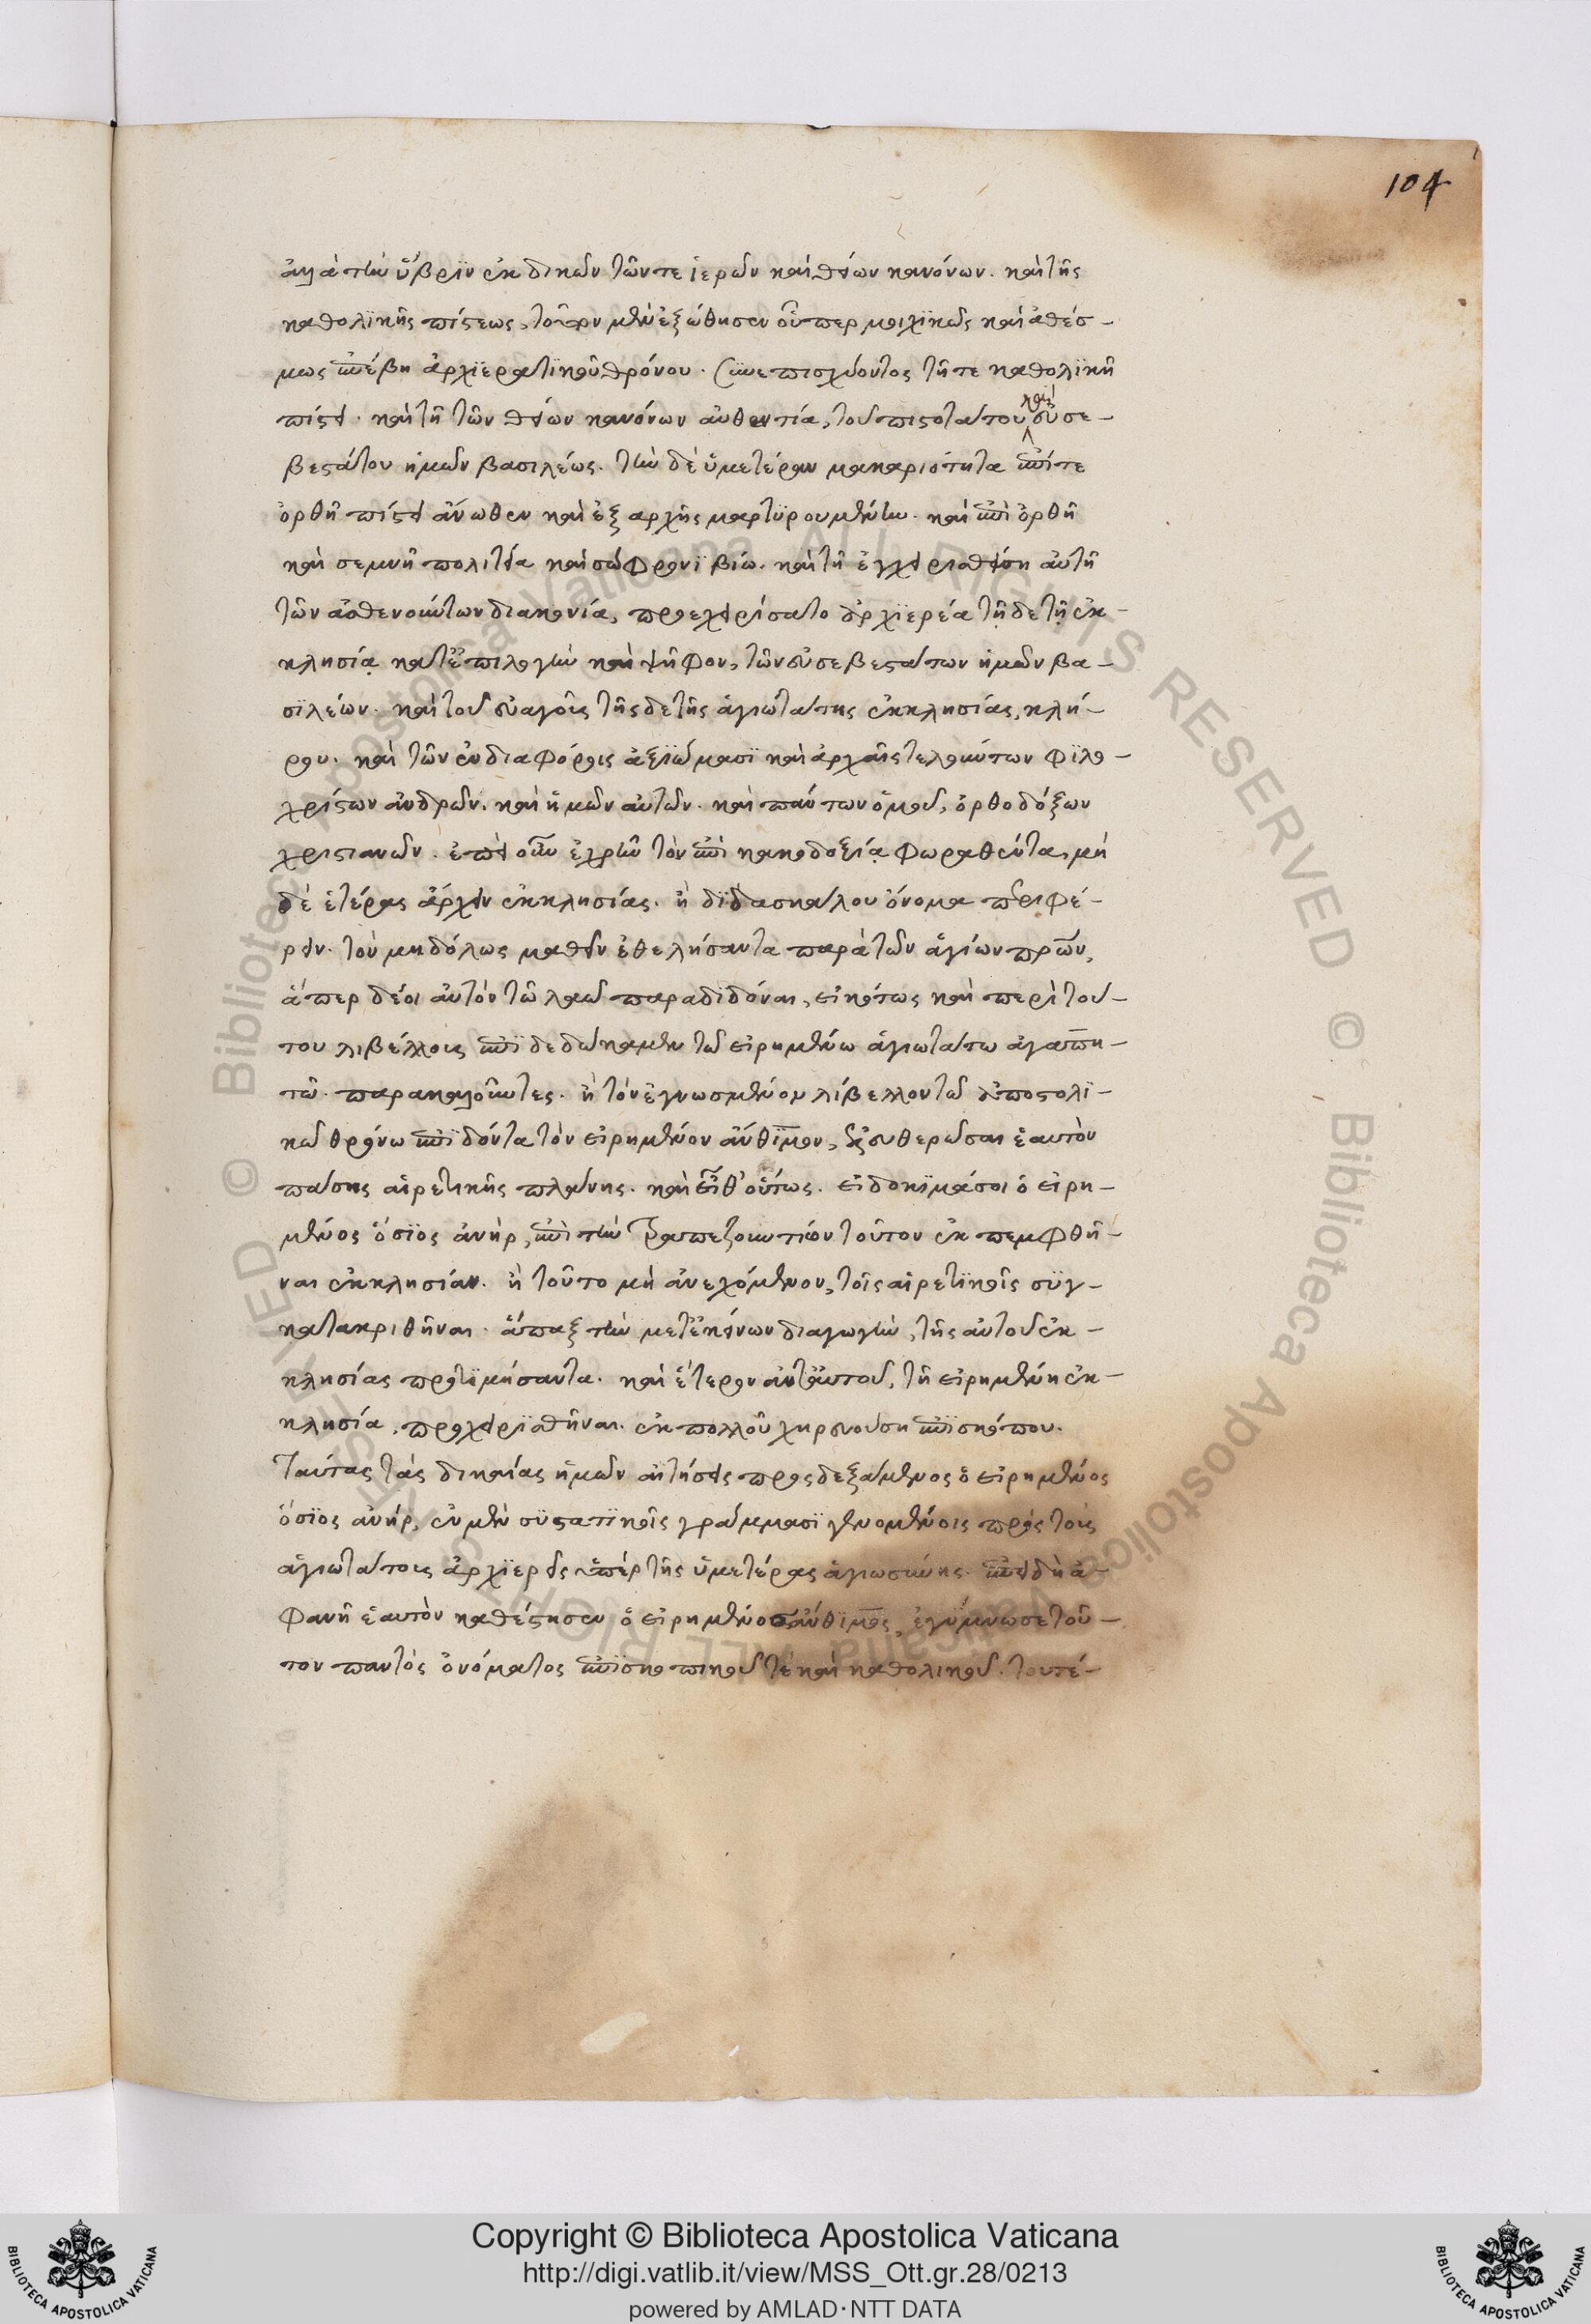 104
ἀλλὰ τὴν ὕβρϊν ἐκδικῶν τῶν τε ἱερῶν καὶ θείων κανόνων. καὶ τῆς
καθολϊκῆς πίστεως, τοῦτον μὲν ἐξώθησεν οὗπερ μοιχϊκῶς καὶ ἀθέσ-
μως ἐπέβη ἀρχϊερατϊκοῦ θρόνου. συνεπισχύοντος τῆ τε καθολϊκῆ
πίστει. καὶ τῆ τῶν θείων κανόνων αὐθεντία, τοῦ πιστοτάτου καὶ εὐσε-
βεστάτου ἡμῶν βασιλέως. τὴν δὲ ὑμετέραν μακαριότητα ἐπί τε
ὀρθῆ πίστει ἄνωθεν καὶ ἐξ αρχῆς μαρτϋρουμένην. καὶ ἐπὶ ὀρθῆ
καὶ σεμνῆ πολιτεία καὶ σώφρονϊ βίω. καὶ τῆ ἐγχειρισθείση αὐτῆ
τῶν ἀσθενούντων διακονία, προεχειρίσατο ἀρχϊερέα τῆδε τῆ ἐκ-
κλησία κατ' ἐπιλογὴν καὶ ψῆφον, τῶν εὐσεβεστάτων ἡμῶν βα-
σϊλέων. καὶ τοῦ εὐαγοῦς τῆςδε τῆς ἁγιωτάτης ἐκκλησίας, κλή-
ρου. καὶ τῶν ἐν διαφόροις ἀξϊώμασϊ καὶ ἀρχαῖς τελούντων φϊλο-
χρίστων ἀνδρῶν. καὶ ἡμῶν αὐτῶν. καὶ πάντων ὁμοῦ, ὀρθοδόξων
χριστιανῶν. ἐπεὶ οὖν ἐχρῆν τὸν ἐπὶ κακοδοξία φωραθέντα, μή
δὲ ἑτέρας ἄρχειν ἐκκλησίας. ἢ δϊδασκάλου ὄνομα περιφέ-
ρειν. τὸν μηδόλως μαθεῖν ἐθελήσαντα παρὰ τῶν ἁγίων πρῶν,
ἅπερ δέοι αὐτὸν τῶ λαῶ παραδϊδόναι, εἰκότως καὶ περὶ τού-
του λιβέλλους ἐπϊδεδώκαμεν τῶ εἰρημένω ἁγιωτάτω ἀγαπη-
τῶ. παρακαλοῦντες. ἢ τὸν ἐγνωσμένον λίβελλον τῶ ἀποστολϊ-
κῶ θρόνω ἐπϊδόντα τὸν εἰρημένον ἄνθϊμον, ἐξευθερῶσαι ἑαυτὸν
πάσης αἱρετικῆς πλάνης. καὶ εἶθ' οὕτως. εἰ δοκϊμάσοι ὁ εἰρη-
μένος ὅσϊος ἀνὴρ, ἐπὶ τὴν Τραπεζουντίων τοῦτον ἐκπεμφθῆ-
ναι ἐκκλησίαν. ἢ τοῦτο μὴ ἀνεχόμενον, τοῖς αἱρετϊκοῖς σϋγ-
κατακριθῆναι. ἅπαξ τὴν μετ' ἐκείνων διαγωγὴν, τῆς αὐτοῦ ἐκ-
κλησίας προτϊμήσαντα. καὶ ἕτερον ἀντ' αὐτοῦ, τῆ εἰρημένη ἐκ-
κλησία, προχειρϊσθῆναι. ἐκ πολλοῦ χηρευούση ἐπϊσκόπου.
Ταύτας τὰς δικαίας ἡμῶν αἰτήσεις προςδεξάμενος ὁ εἰρημένος
ὅσϊος ἀνήρ, ἐν μὲν σϋστατϊκοῖς γράμμασϊ γενομένοις πρὸς τοὺς
ἁγιωτάτους ἀρχϊερεῖς ὑπὲρ τῆς ὑμετέρας ἁγιωσύνης. ἐπειδὴ ἀ-
φανῆ ἑαυτὸν κατέστησεν ὁ εἰρημένος ἄνθϊμος, ἐγύμνωσε τοῦ-
τον παντὸς ὀνόματος ἐπϊσκοπικοῦ τὲ καὶ καθολικοῦ. τουτέ-
Copyright © Biblioteca Apostolica Vaticana
http://digi.vatlib.it/view/MSS_Ott.gr.28/0213
powered by AMLAD·NTT DATA